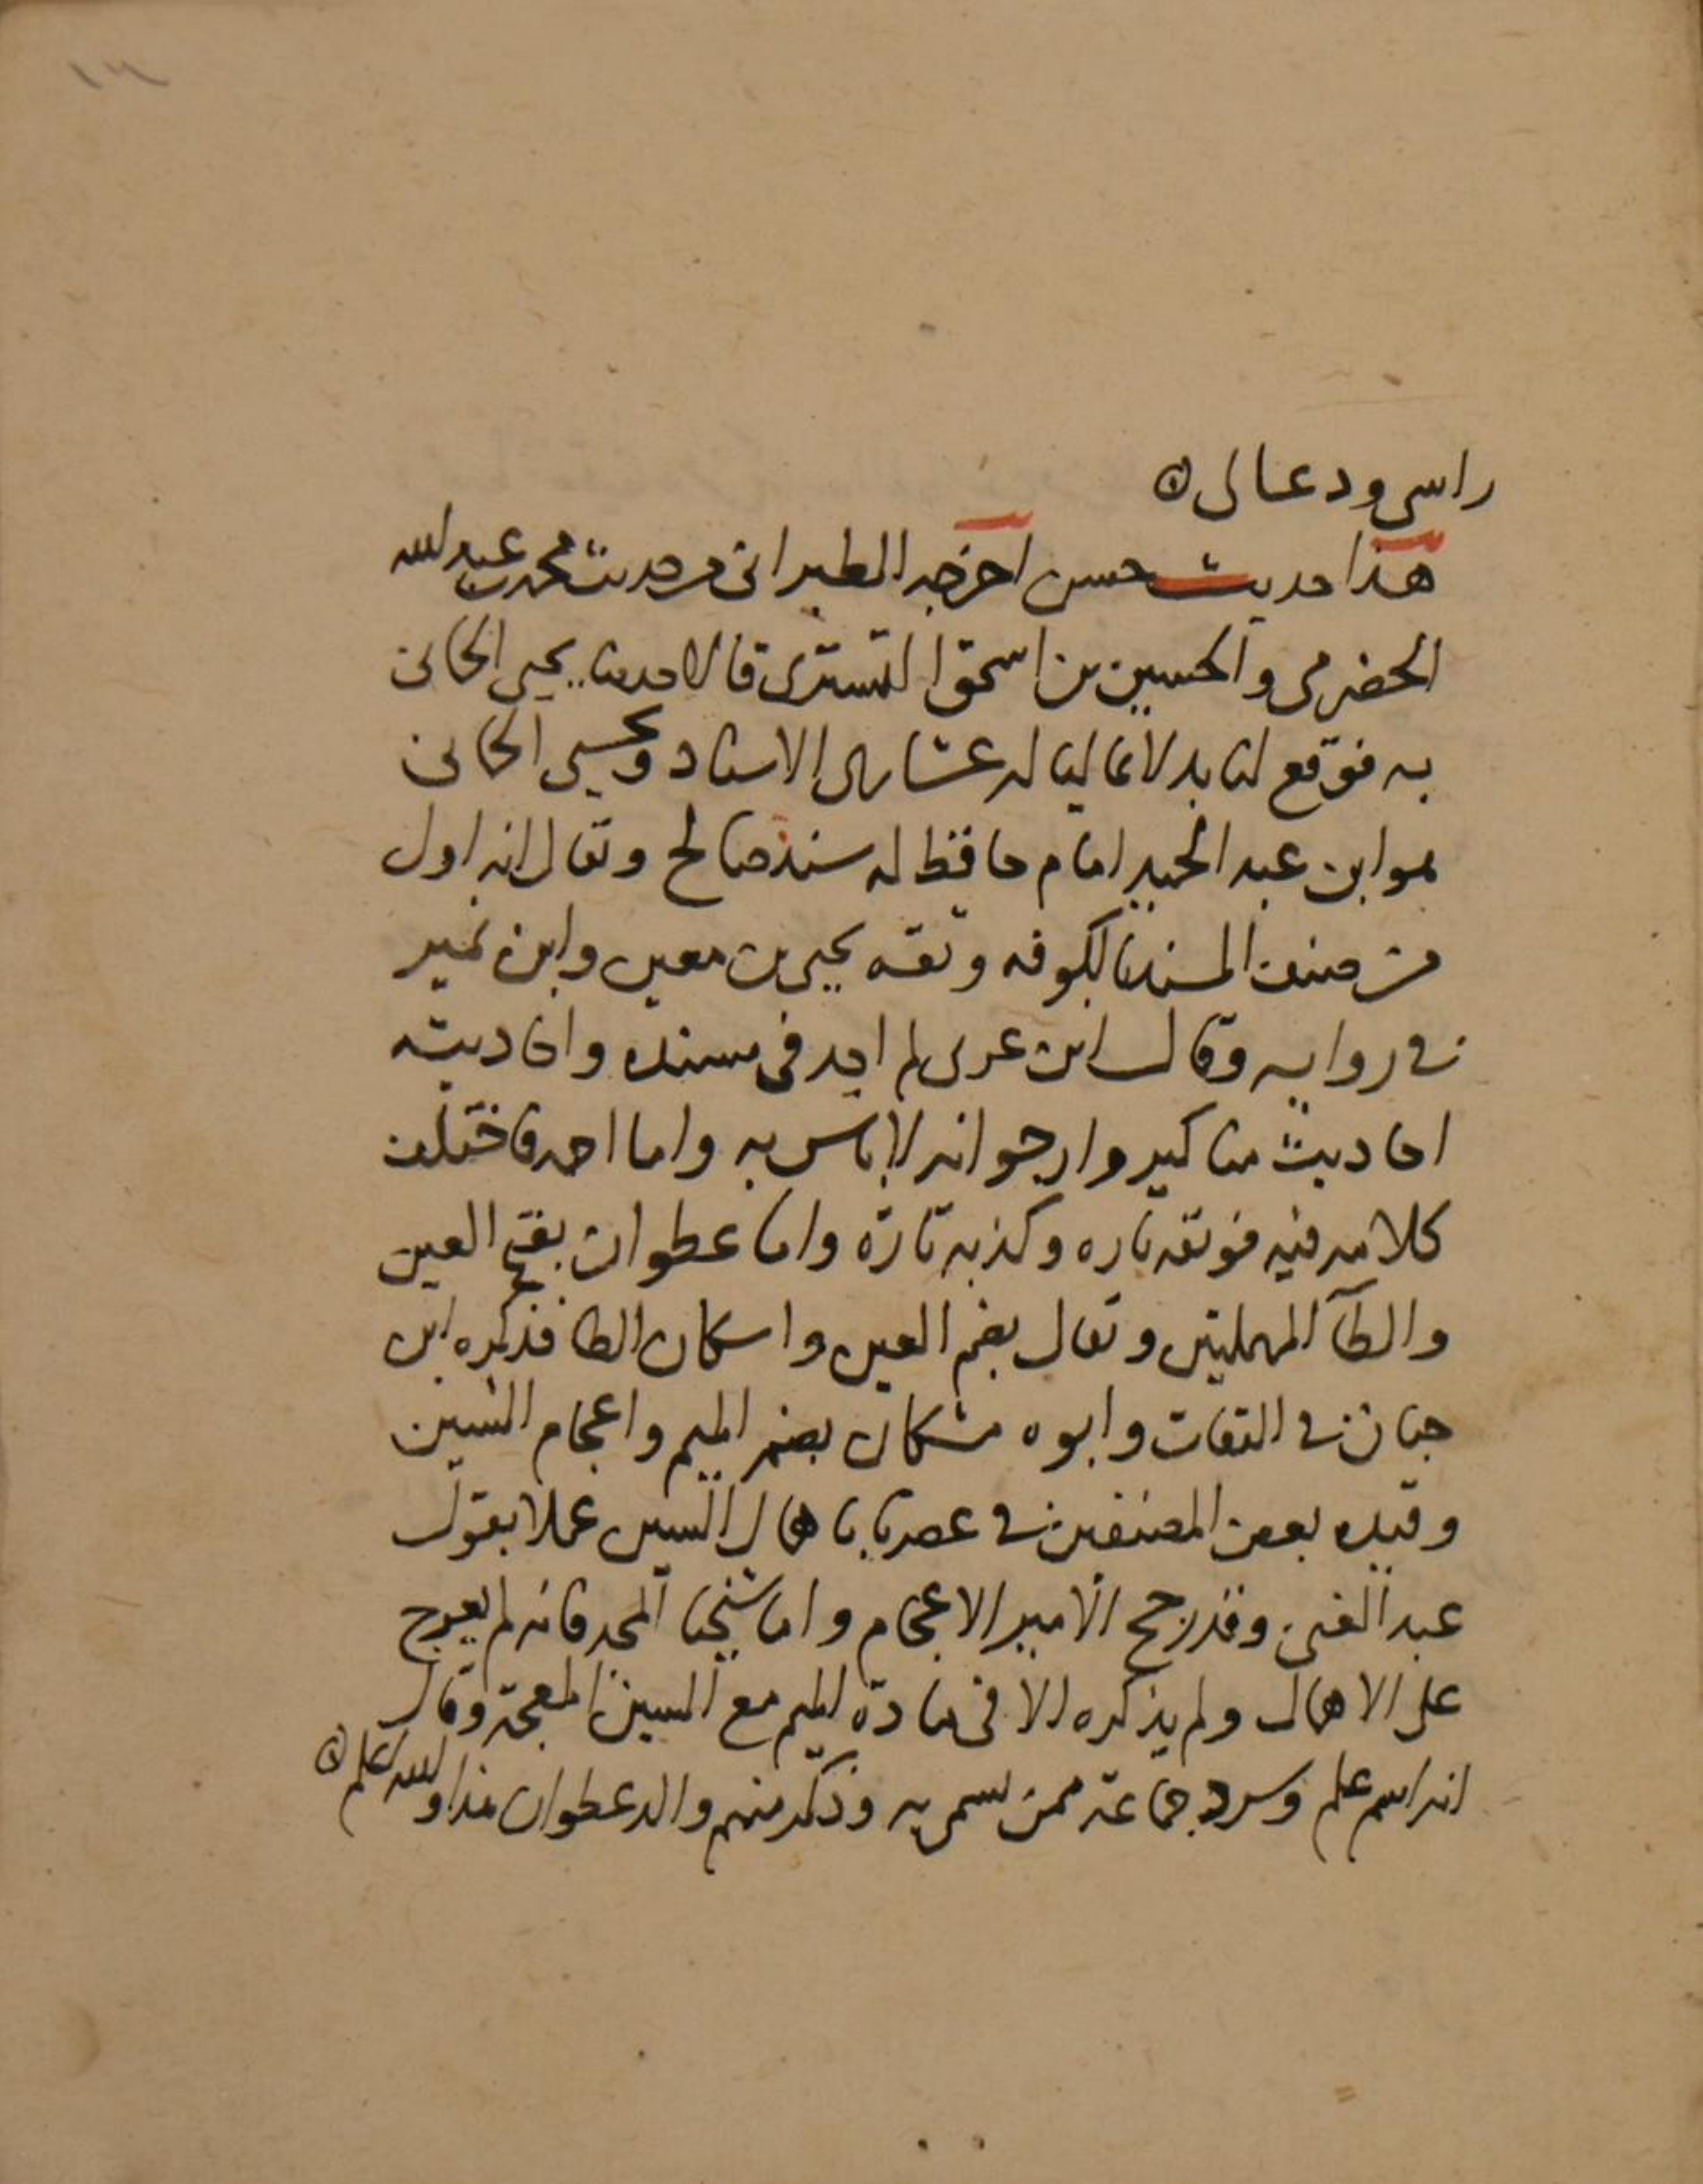 ١٣
راسي ودعا لي
هذا حديث حسن اخرجه الطبراني من حديث محمد بن عبد الله
الحضرمي والحسين بن اسحق التستري قالا حدثنا يحيى الحماني
به فوقع لنا بدلا عاليا له عشاري الاسناد ويحيى الحماني
هو ابن عبد الحميد امام حافظ له سند صالح ويقال انه اول
من صنف المسند بالكوفه وثقه يحيى بن معين وابن نمير
في روايه وقال ابن عدي لم اجد في مسنده واحاديثه
احاديث مناكير وارجو انه لا باس به واما احمد فاختلف
كلامه فيه فوثقه تاره وكذبه تارة واما عطوان بفتح العين
والطآ المهملتين ويقال بضم العين واسكان الطا فذكره ابن
حبان في الثقات وابوه مشكان بضم الميم واعجام الشين
وقيده بعض المصنفين في عصرنا باهمال السين عملا بقول
عبد الغني وقد رجح الامير الاعجام واما شيخنا المجد فانه لم يعرج
على الاهمال ولم يذكره الا في مادة الميم مع الشين المعجمة وقال
انه اسم علم وسرد جماعة ممن سمي به وذكر منهم والد عطوان هذا والله اعلم